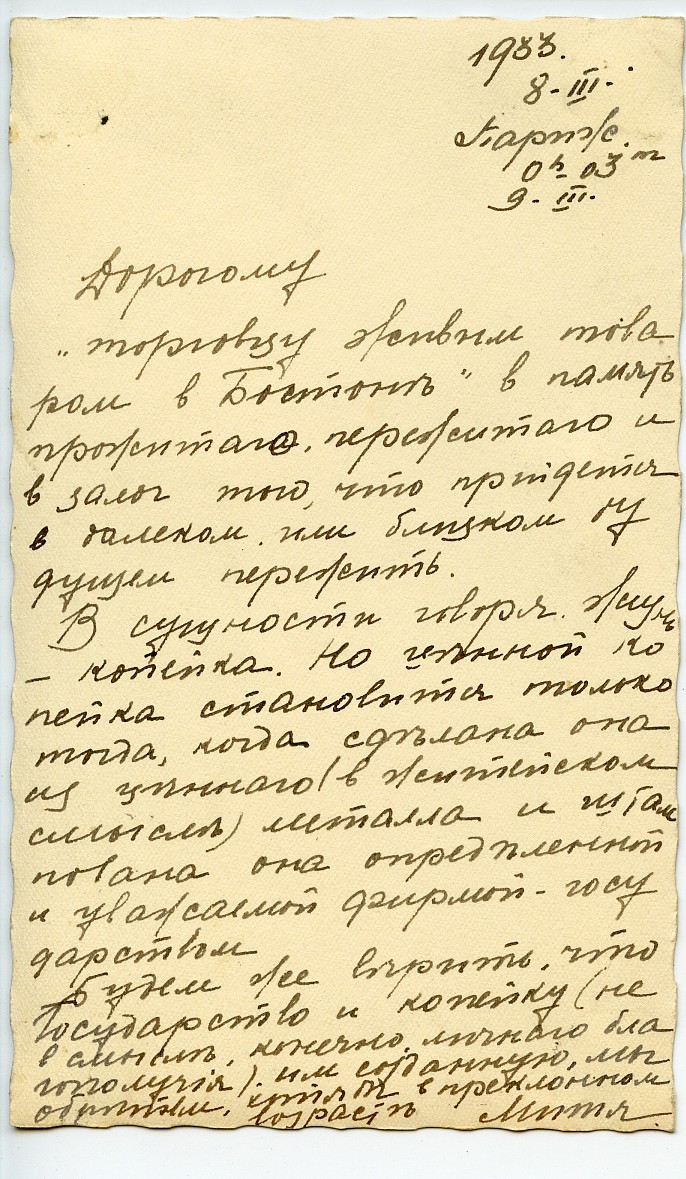 1933.
8-III.
Париж.
0ʰ 03ᵐ
9-III.
Дорогому
„торговцу живым това
ром в Бостонѣ“ в память
прожитаго, пережитаго и
в залог того, что придется
в далеком или близком бу
дущем пережить.
В сущности говоря жизнь
– копейка. Но цѣнной ко
пейка становится только
тогда, когда сдѣлана она
из цѣннаго (в житейском
смыслѣ) металла и штам
пована она опредѣленной
и уважаемой фирмой – госу
дарством
Будем же вѣрить, что
Государство и копейку (не
в смыслѣ, конечно, личнаго бла
гополучія), им созданную, мы
обрѣтем, хотя б в преклонном
возрастѣ Митя.